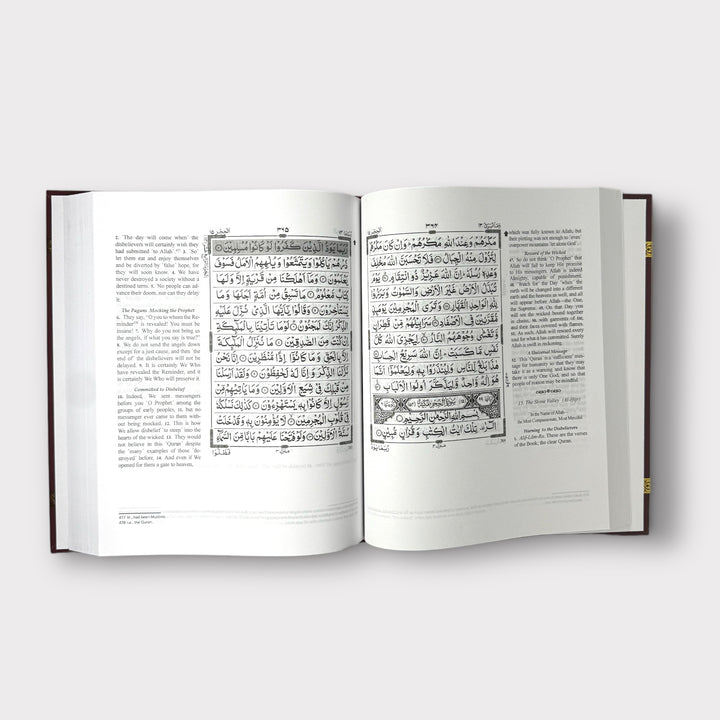 ٣٩٤
مَكْرَهُمْ وَعِنْدَ اللّٰهِ مَكْرُهُمْ وَاِنْ كَانَ مَكْرُهُمْ
لِتَزُوْلَ مِنْهُ الْجِبَالُ فَلَا تَحْسَبَنَّ اللّٰهَ مُخْلِفَ
وَعْدِهٖ رُسُلَهٗ اِنَّ اللّٰهَ عَزِيْزٌ ذُو انْتِقَامٍ يَوْمَ
تُبَدَّلُ الْاَرْضُ غَيْرَ الْاَرْضِ وَالسَّمٰوٰتُ وَبَرَزُوْا
لِلّٰهِ الْوَاحِدِ الْقَهَّارِ وَتَرَى الْمُجْرِمِيْنَ يَوْمَئِذٍ
مُّقَرَّنِيْنَ فِى الْاَصْفَادِ سَرَابِيْلُهُمْ مِّنْ قَطِرَانٍ
وَّتَغْشٰى وُجُوْهَهُمُ النَّارُ لِيَجْزِىَ اللّٰهُ كُلَّ
نَفْسٍ مَّا كَسَبَتْ اِنَّ اللّٰهَ سَرِيْعُ الْحِسَابِ
هٰذَا بَلٰغٌ لِّلنَّاسِ وَلِيُنْذَرُوْا بِهٖ وَلِيَعْلَمُوْٓا اَنَّمَا
هُوَ اِلٰهٌ وَّاحِدٌ وَّلِيَذَّكَّرَ اُولُوا الْاَلْبَابِ
بِسْمِ اللّٰهِ الرَّحْمٰنِ الرَّحِيْمِ
الٓرٰ تِلْكَ اٰيٰتُ الْكِتٰبِ وَقُرْاٰنٍ مُّبِيْنٍ
which was fully known to Allah, but
their plotting was not enough to ˹even˺
overpower mountains ˹let alone God˺
Reward of the Wicked
47. So do not think ˹O Prophet˺ that
Allah will fail to keep His promise
to His messengers. Allah is indeed
Almighty, capable of punishment.
48. ˹Watch for˺ the Day ˹when˺ the
earth will be changed into a different
earth and the heavens as well, and all
will appear before Allah—the One,
the Supreme. 49. On that Day you
will see the wicked bound together
in chains, 50. with garments of tar,
and their faces covered with flames.
51. As such, Allah will reward every
soul for what it has committed. Surely
Allah is swift in reckoning.
A Universal Message
52. This ˹Quran˺ is a ˹sufficient˺ message
for humanity so that they may
take it as a warning and know that
there is only One God, and so that
people of reason may be mindful.
15. The Stone Valley (Al-Ḥijr)
In the Name of Allah—
the Most Compassionate, Most Merciful
Warning to the Disbelievers
1. Alif-Lãm-Ra. These are the verses
of the Book, the clear Quran.
٣٩٥
رُبَمَا يَوَدُّ الَّذِيْنَ كَفَرُوْا لَوْ كَانُوْا مُسْلِمِيْنَ
ذَرْهُمْ يَاْكُلُوْا وَيَتَمَتَّعُوْا وَيُلْهِهِمُ الْاَمَلُ فَسَوْفَ
يَعْلَمُوْنَ وَمَآ اَهْلَكْنَا مِنْ قَرْيَةٍ اِلَّا وَلَهَا
كِتَابٌ مَّعْلُوْمٌ مَا تَسْبِقُ مِنْ اُمَّةٍ اَجَلَهَا وَمَا
يَسْتَاْخِرُوْنَ وَقَالُوْا يٰٓاَيُّهَا الَّذِىْ نُزِّلَ عَلَيْهِ
الذِّكْرُ اِنَّكَ لَمَجْنُوْنٌ لَوْمَا تَاْتِيْنَا بِالْمَلٰٓئِكَةِ
اِنْ كُنْتَ مِنَ الصّٰدِقِيْنَ مَا نُنَزِّلُ الْمَلٰٓئِكَةَ
اِلَّا بِالْحَقِّ وَمَا كَانُوْٓا اِذًا مُّنْظَرِيْنَ اِنَّا نَحْنُ
نَزَّلْنَا الذِّكْرَ وَاِنَّا لَهٗ لَحٰفِظُوْنَ وَلَقَدْ اَرْسَلْنَا
مِنْ قَبْلِكَ فِىْ شِيَعِ الْاَوَّلِيْنَ وَمَا يَاْتِيْهِمْ مِّنْ
رَّسُوْلٍ اِلَّا كَانُوْا بِهٖ يَسْتَهْزِءُوْنَ كَذٰلِكَ نَسْلُكُهٗ
فِىْ قُلُوْبِ الْمُجْرِمِيْنَ لَا يُؤْمِنُوْنَ بِهٖ وَقَدْ خَلَتْ
سُنَّةُ الْاَوَّلِيْنَ وَلَوْ فَتَحْنَا عَلَيْهِمْ بَابًا مِّنَ السَّمَآءِ
2. ˹The day will come˺ when the
disbelievers will certainly wish they
had submitted ˹to Allah˺.⁴¹⁷ 3. ˹So˺
let them eat and enjoy themselves
and be diverted by ˹false˺ hope, for
they will soon know. 4. We have
never destroyed a society without a
destined term. 5. No people can advance
their doom, nor can they delay
it.
The Pagans Mocking the Prophet
6. They say, “O you to whom the Reminder⁴¹⁸
is revealed! You must be
insane! 7. Why do you not bring us
the angels, if what you say is true?”
8. We do not send the angels down
except for a just cause, and then ˹the
end of˺ the disbelievers will not be
delayed. 9. It is certainly We Who
have revealed the Reminder, and it is
certainly We Who will preserve it.
Committed to Disbelief
10. Indeed, We sent messengers
before you ˹O Prophet˺ among the
groups of early peoples, 11. but no
messenger ever came to them without
being mocked. 12. This is how
We allow disbelief ˹to steep˺ into the
hearts of the wicked. 13. They would
not believe in this ˹Quran˺ despite
the ˹many˺ examples of those ˹destroyed˺
before. 14. And even if We
opened for them a gate to heaven,
417 lit., had been Muslims.
418 i.e., the Quran.